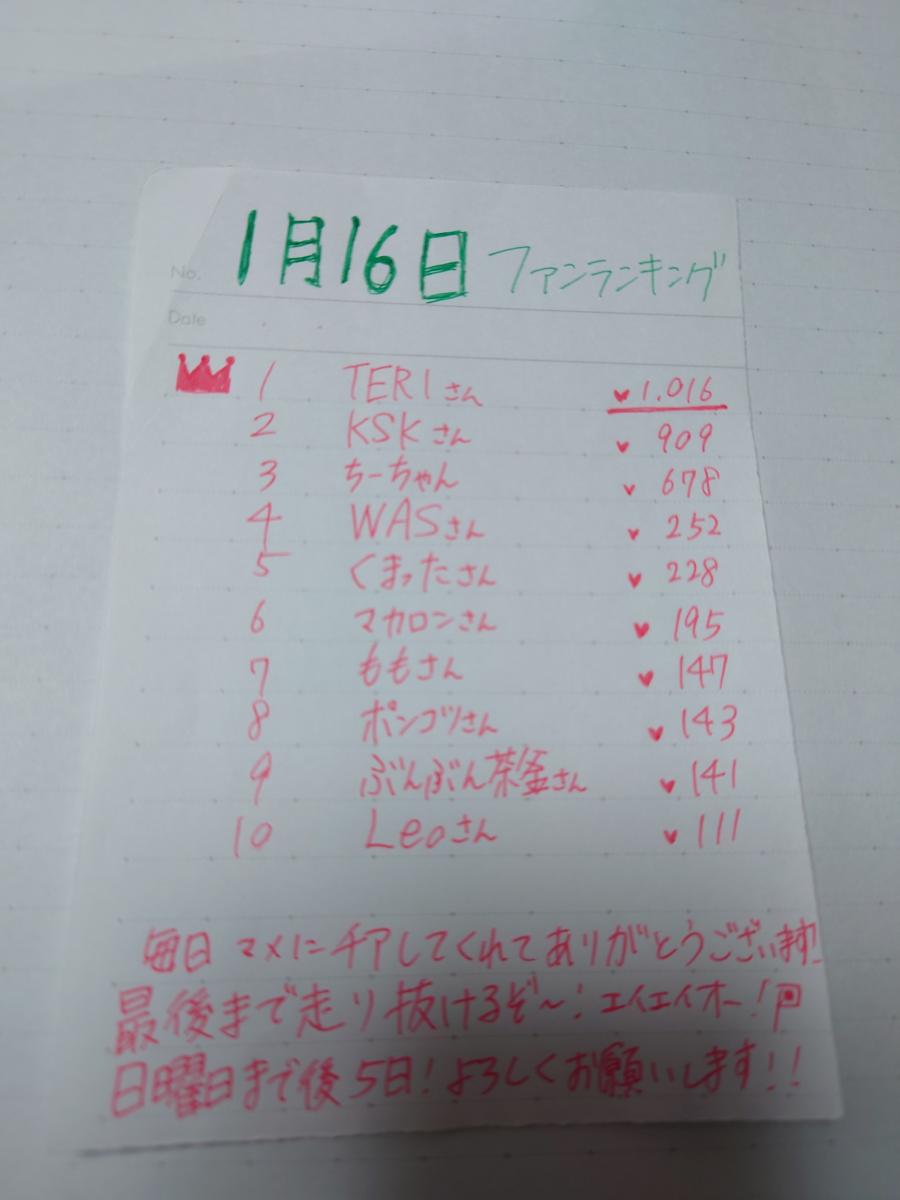 1月16日 ファンランキング
No.
Date
1 TERIさん ♥ 1.016
2 KSKさん ♥ 909
3 ちーちゃん ♥ 678
4 WASさん ♥ 252
5 くまったさん ♥ 228
6 マカロンさん ♥ 195
7 ももさん ♥ 147
8 ポンコツさん ♥ 143
9 ぶんぶん茶釜さん ♥ 141
10 Leoさん ♥ 111
毎日 マメにチアしてくれてありがとうございます!
最後まで走り抜けるぞ〜! エイエイオー!
日曜日まで後5日! よろしくお願いします!!